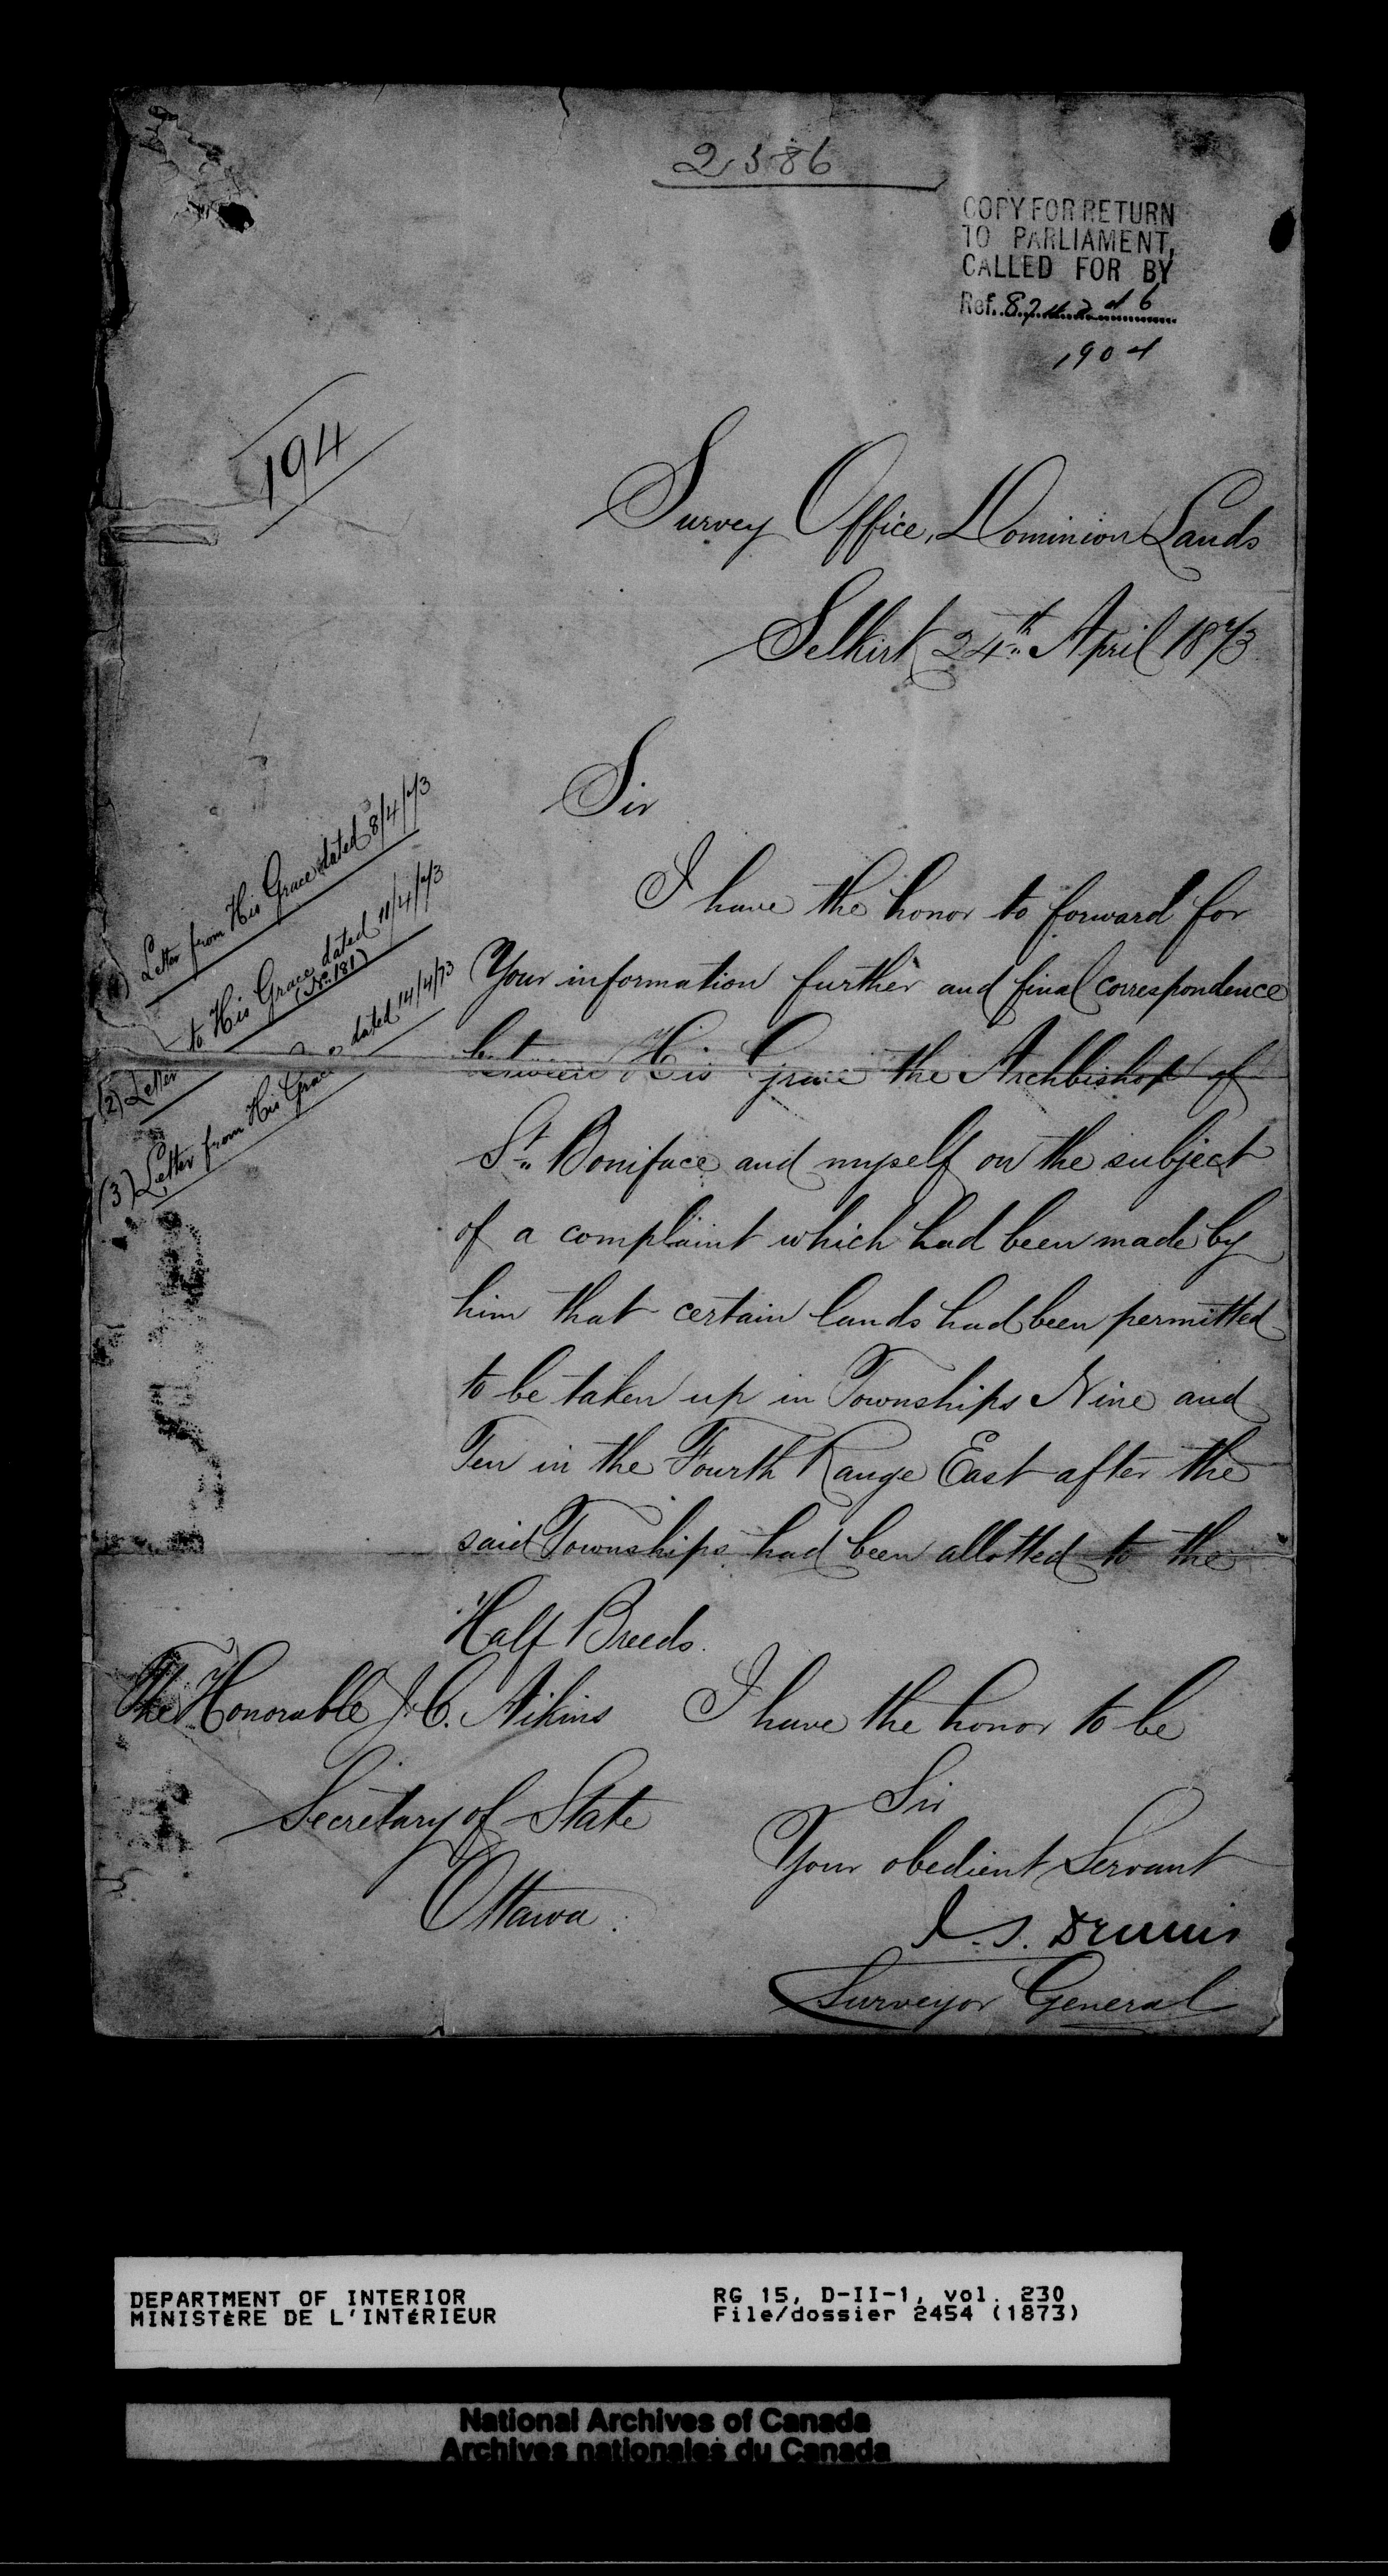 2386
COPY FOR RETURN
TO PARLIAMENT,
CALLED FOR BY
Ref.
1904
194
Survey Office, Dominion Lands
Selkirk 24th April 1873
Sir
I have the honor to forward for
Your information further and final correspondence
between His Grace the Archbishop of
St. Boniface and myself on the subject
of a complaint which had been made by
him that certain lands had been permitted
to be taken up in Townships Nine and
Ten in the Fourth Range East after the
said Townships had been allotted to the
Half Breeds.
Letter from His Grace dated 8/4/73
(2) Letter to His Grace dated 11/4/73
(No. 181)
(3) Letter from His Grace dated 14/4/73
I have the honor to be
Sir
Your obedient Servant
J. S. Dennis
Surveyor General
The Honorable J. C. Aikins
Secretary of State
Ottawa.
DEPARTMENT OF INTERIOR
MINISTÈRE DE L'INTÉRIEUR
RG 15, D-II-1, vol. 230
File/dossier 2454 (1873)
National Archives of Canada
Archives nationales du Canada